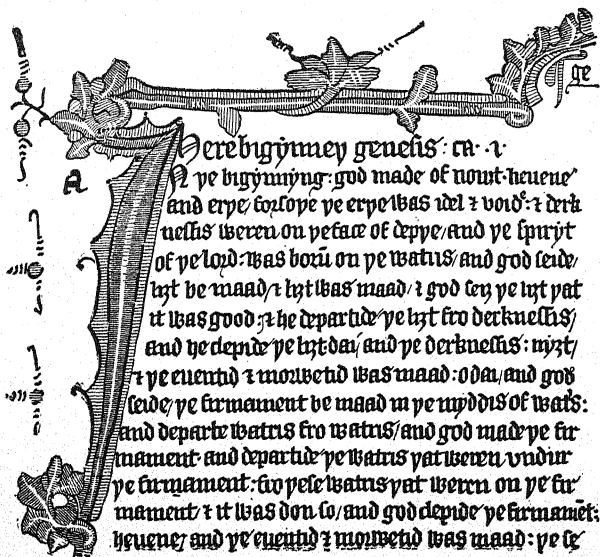 ge
Here bigynney genesis: ca. i
a
N ye bigynnyng: god made of nouȝt heuene
and erye/ forsoye ye erye was idel ⁊ voide: ⁊ derk
nessis weren on ye face of depye/ and ye spiryt
of ye lord: was borū on ye watris/ and god seide/
liȝt be maad/ ⁊ liȝt was maad/ ⁊ god seȝ ye liȝt yat
it was good: ⁊ he departide ye liȝt fro derknessis/
and he clepide ye liȝt dai/ and ye derknessis: nyȝt/
⁊ ye euentid ⁊ morwetid was maad: o dai/ and god
seide/ ye firmament be maad in ye myddis of watris:
and departe watris fro watris/ and god made ye fir
mament and departide ye watris yat weren vndur
ye firmament: fro yese watris yat weren on ye fir
mament/ ⁊ it was don so/ and god clepide ye firmamēt:
heuene/ and ye euentid ⁊ morwetid was maad: ye se